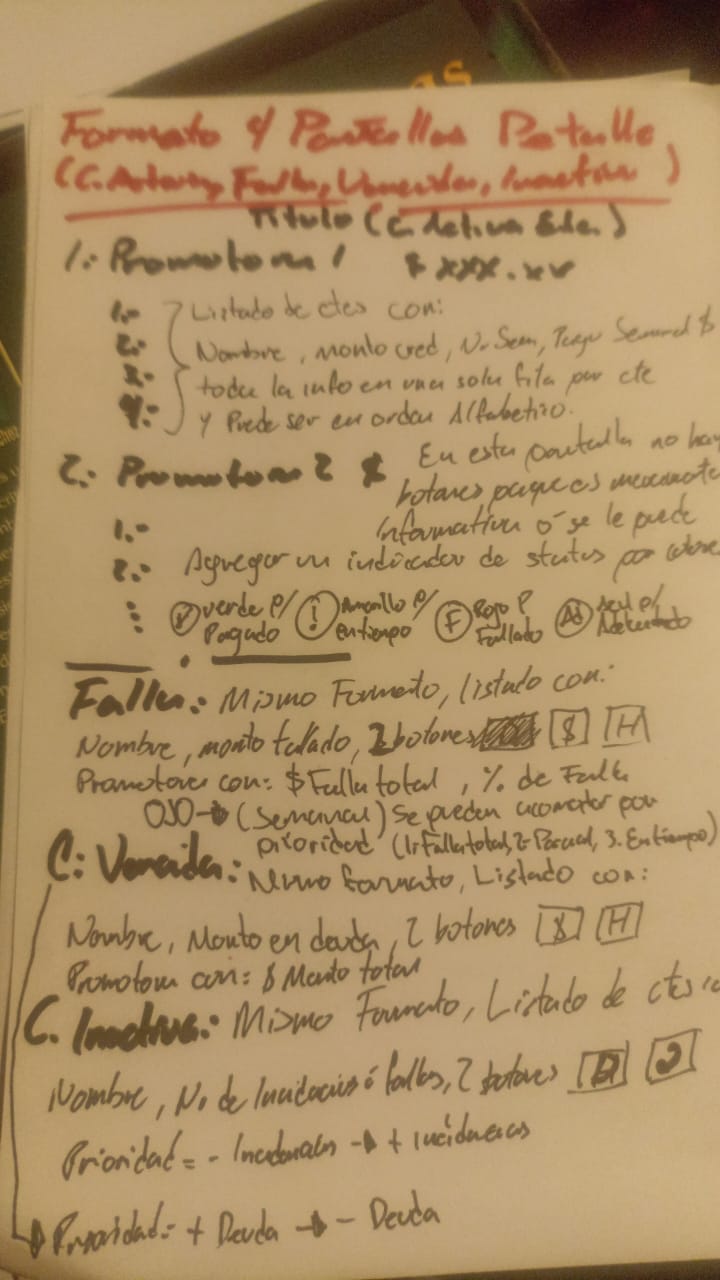 as
Formato y Pantallas Detalle
(C. Activa, Falla, Vencida, Inactiva)
Titulo (C. Activa Sem.)
1.- Promotora 1 $ xxx.xx
1.- Listado de ctes con:
2.- Nombre, monto cred, No Sem, Pago Semanal $
3.- toda la info en una sola fila por cte
4.- y Puede ser en orden Alfabetico.
2.- Promotora 2 $ En esta pantalla no hay
botones porque es meramente
1.- informativa ó se le puede
2.- Agregar un indicador de status por
: verde p/ Pagado ! Amarillo p/ en tiempo F Rojo P Fallado Ad Azul p/ Adelantado
Falla: Mismo Formato, listado con:
Nombre, monto fallado, 2 botones $ H
Promotora con: $ Falla total, % de Falla
OJO → (Semanal) Se pueden acomodar por
prioridad (1: Falla total, 2- Parcial, 3. En tiempo)
C: Vencida: Mismo formato, Listado con:
Nombre, Monto en deuda, 2 botones $ H
Promotora con: $ Monto total
C. Inactiva: Mismo Formato, Listado de ctes
Nombre, No de Incidencias ó fallas, 2 botones
Prioridad = - Incidencias → + incidencias
Prioridad: + Deuda → - Deuda